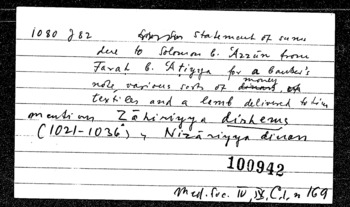 1080 J 82 statement of sums
due to Solomon b. 'Azzūn from
Faraḥ b. 'Aṭiyya for a banker's
note, various sorts of money
textiles and a lamb delivered to him
mentions Ẓāhiriyya dirhems
(1021-1036) & Nizāriyya dinars
100942
Med. Soc. IV, IX, C, 1, n 169